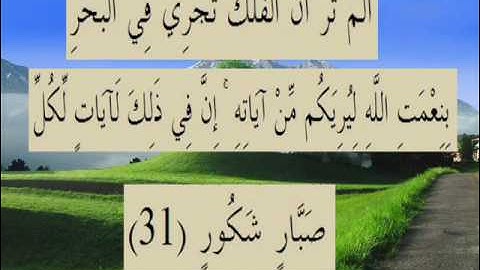 أَلَمْ تَرَ أَنَّ الْفُلْكَ تَجْرِي فِي الْبَحْرِ
بِنِعْمَتِ اللَّهِ لِيُرِيَكُم مِّنْ آيَاتِهِ ۚ إِنَّ فِي ذَٰلِكَ لَآيَاتٍ لِّكُلِّ
صَبَّارٍ شَكُورٍ (31)